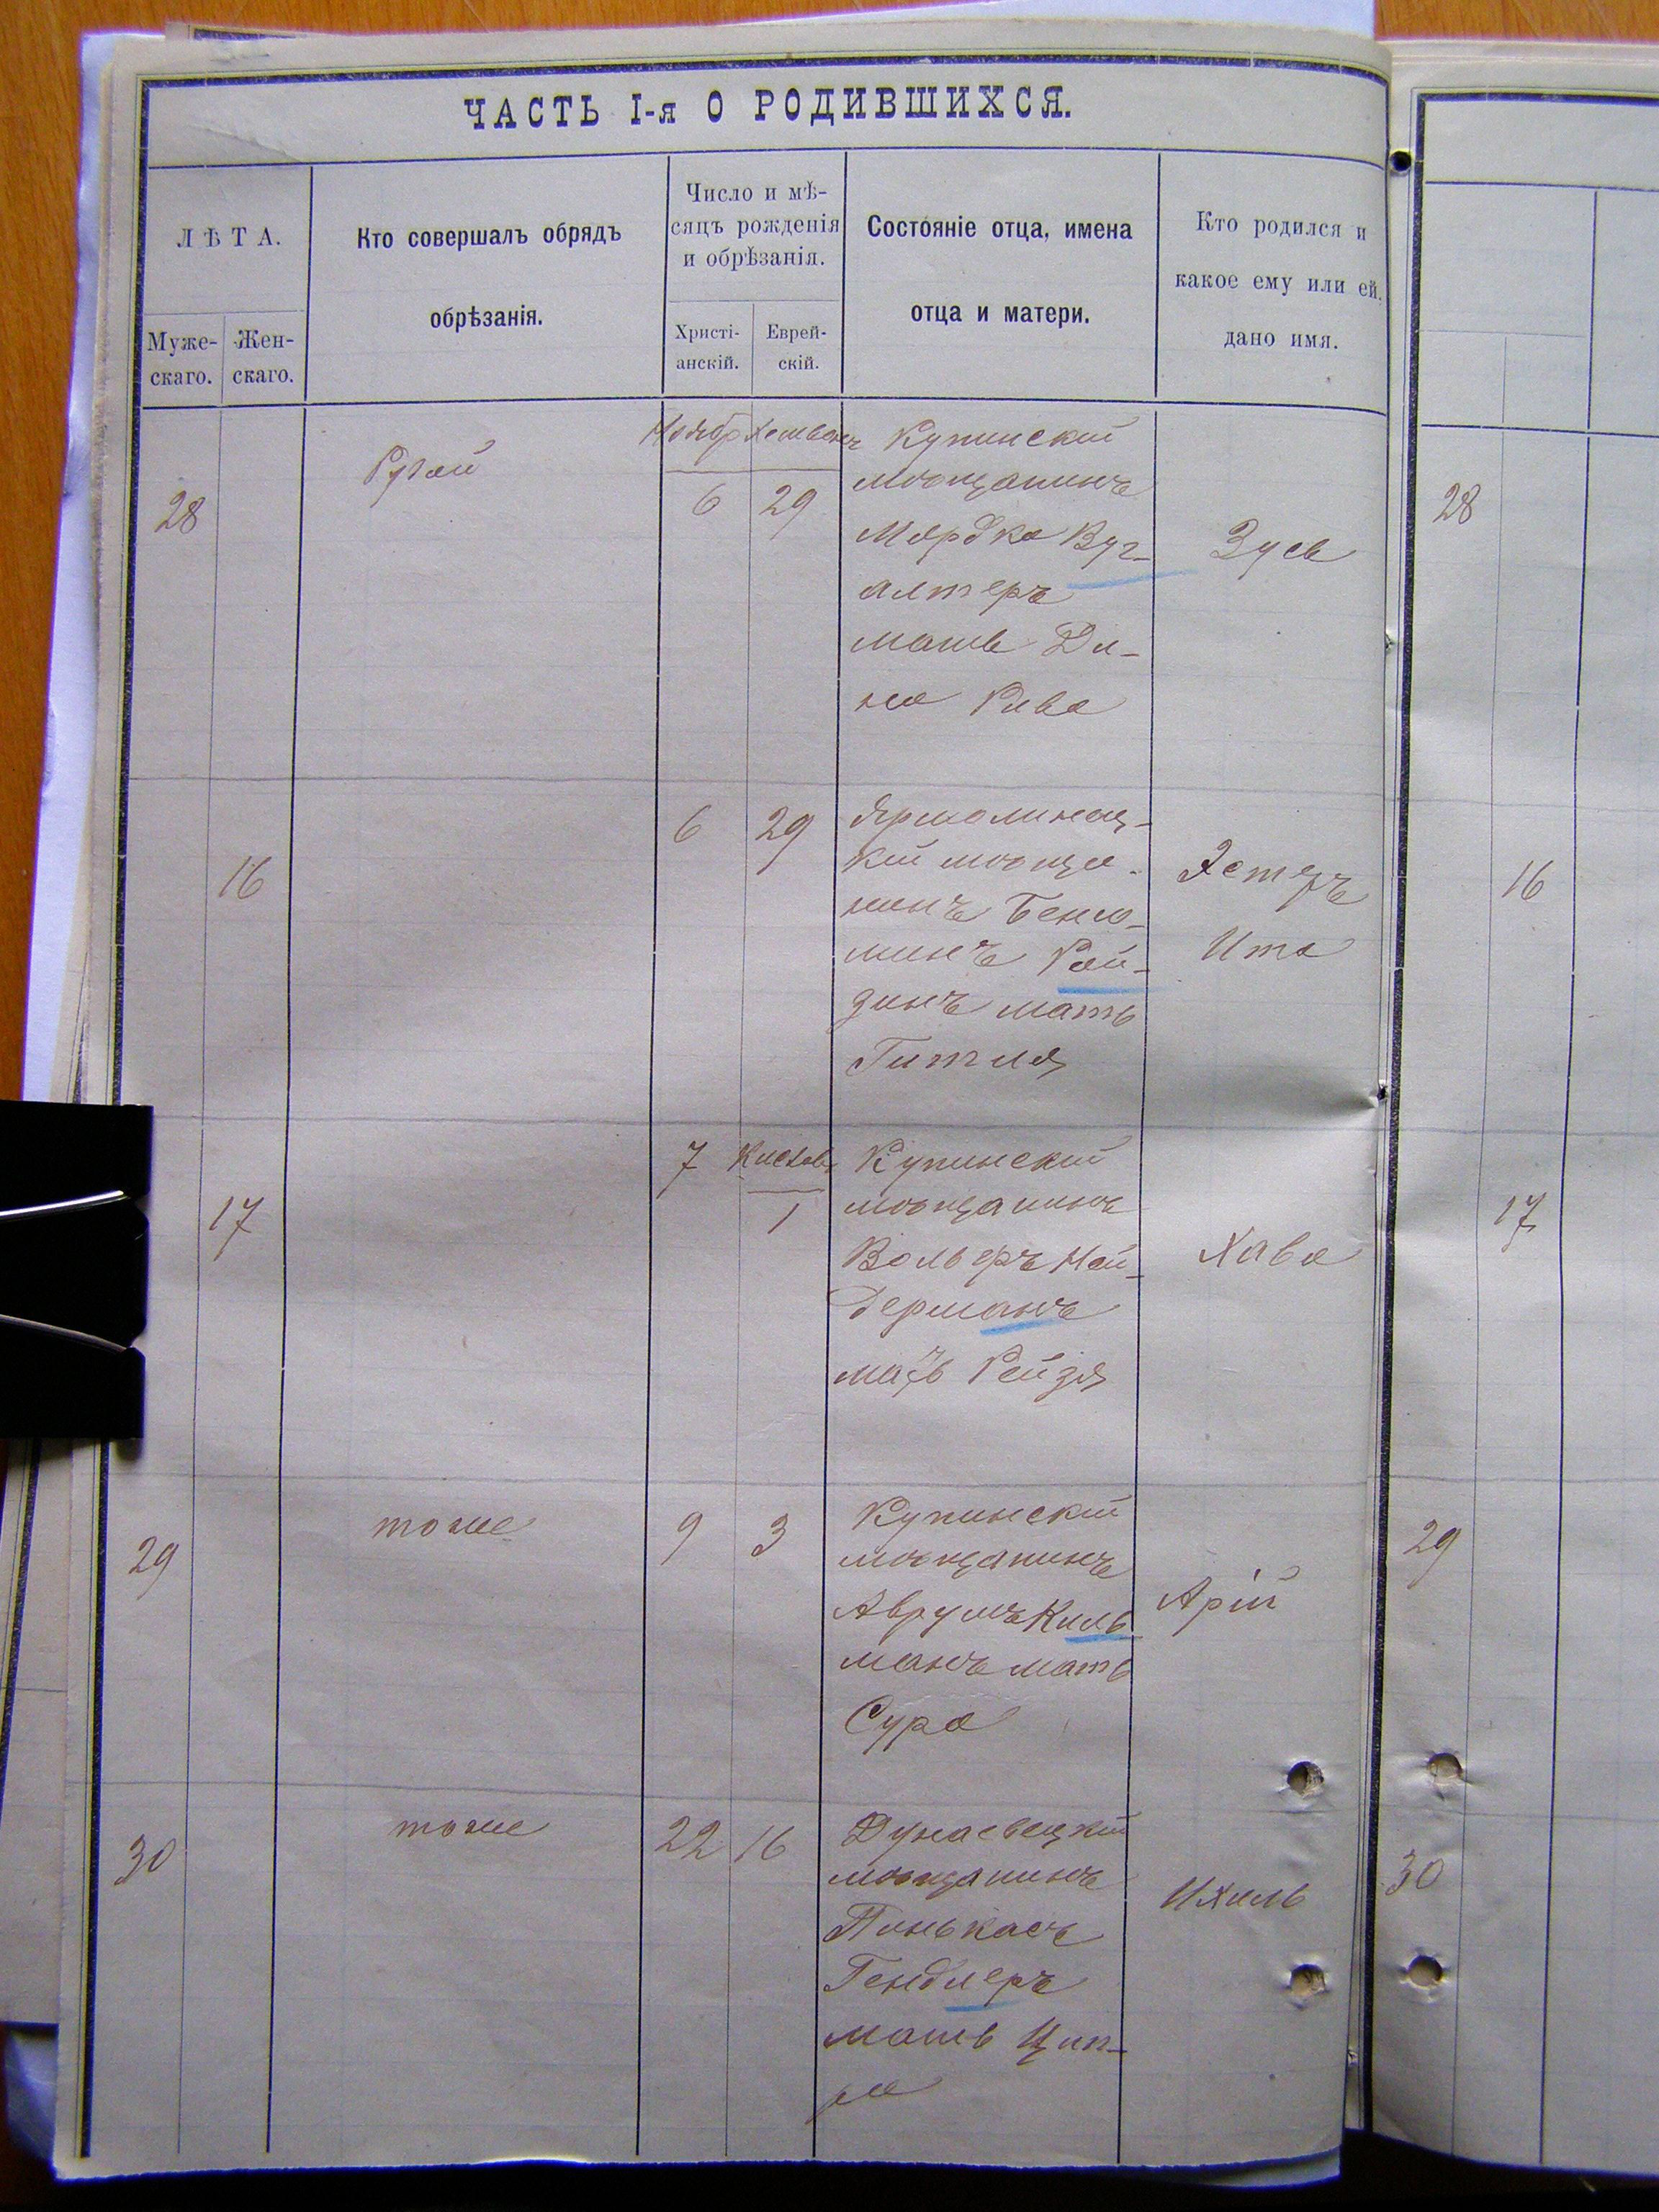 ЧАСТЬ I-я О РОДИВШИХСЯ.
ЛѢТА.
Муже-
скаго.
Жен-
скаго.
Кто совершалъ обрядъ
обрѣзанія.
Число и мѣ-
сяцъ рожденія
и обрѣзанія.
Христі-
анскій.
Еврей-
скій.
Состояніе отца, имена
отца и матери.
Кто родился и
какое ему или ей
дано имя.
28
Ноябр
6
29
Купинскій
мѣщанинъ
Мордко Буг-
алтеръ
мать Ди-
на Рива
Зусь
28
16
6
29
Ярмолинец-
кій мѣща-
нинъ Беню-
минъ Рой-
зинъ мать
Гитля
Эстеръ
Ита
16
17
7
Кислевъ
1
Купинскій
мѣщанинъ
Вольфъ Най-
дерманъ
мать Рейзя
Хава
17
29
тоже
9
3
Купинскій
мѣщанинъ
Аврумъ Киль
манъ мать
Сура
Арій
29
30
тоже
22
16
Дунаевецкій
мѣщанинъ
Пинькасъ
Гендлеръ
мать Цип-
ра
Ихиль
30